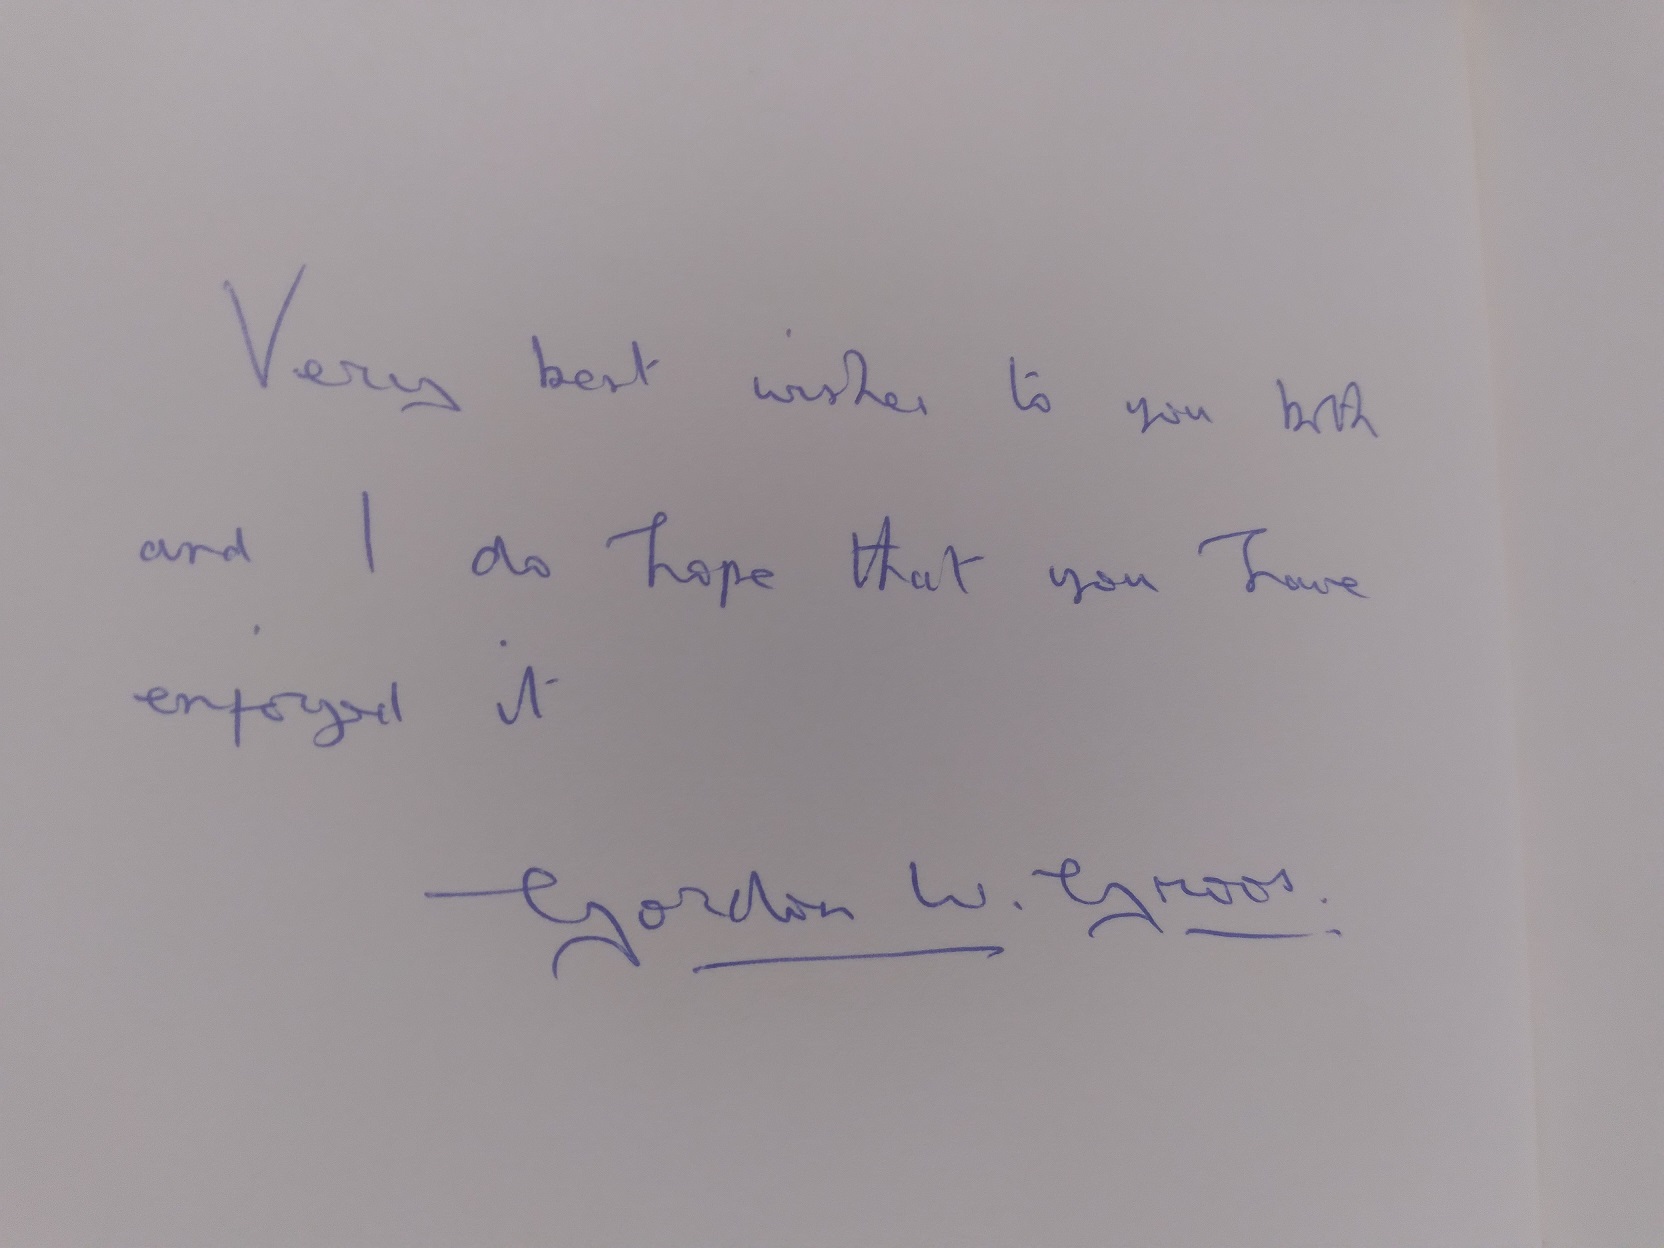 Very best wishes to you both
and I do hope that you have
enjoyed it
— Gordon W. Groos.